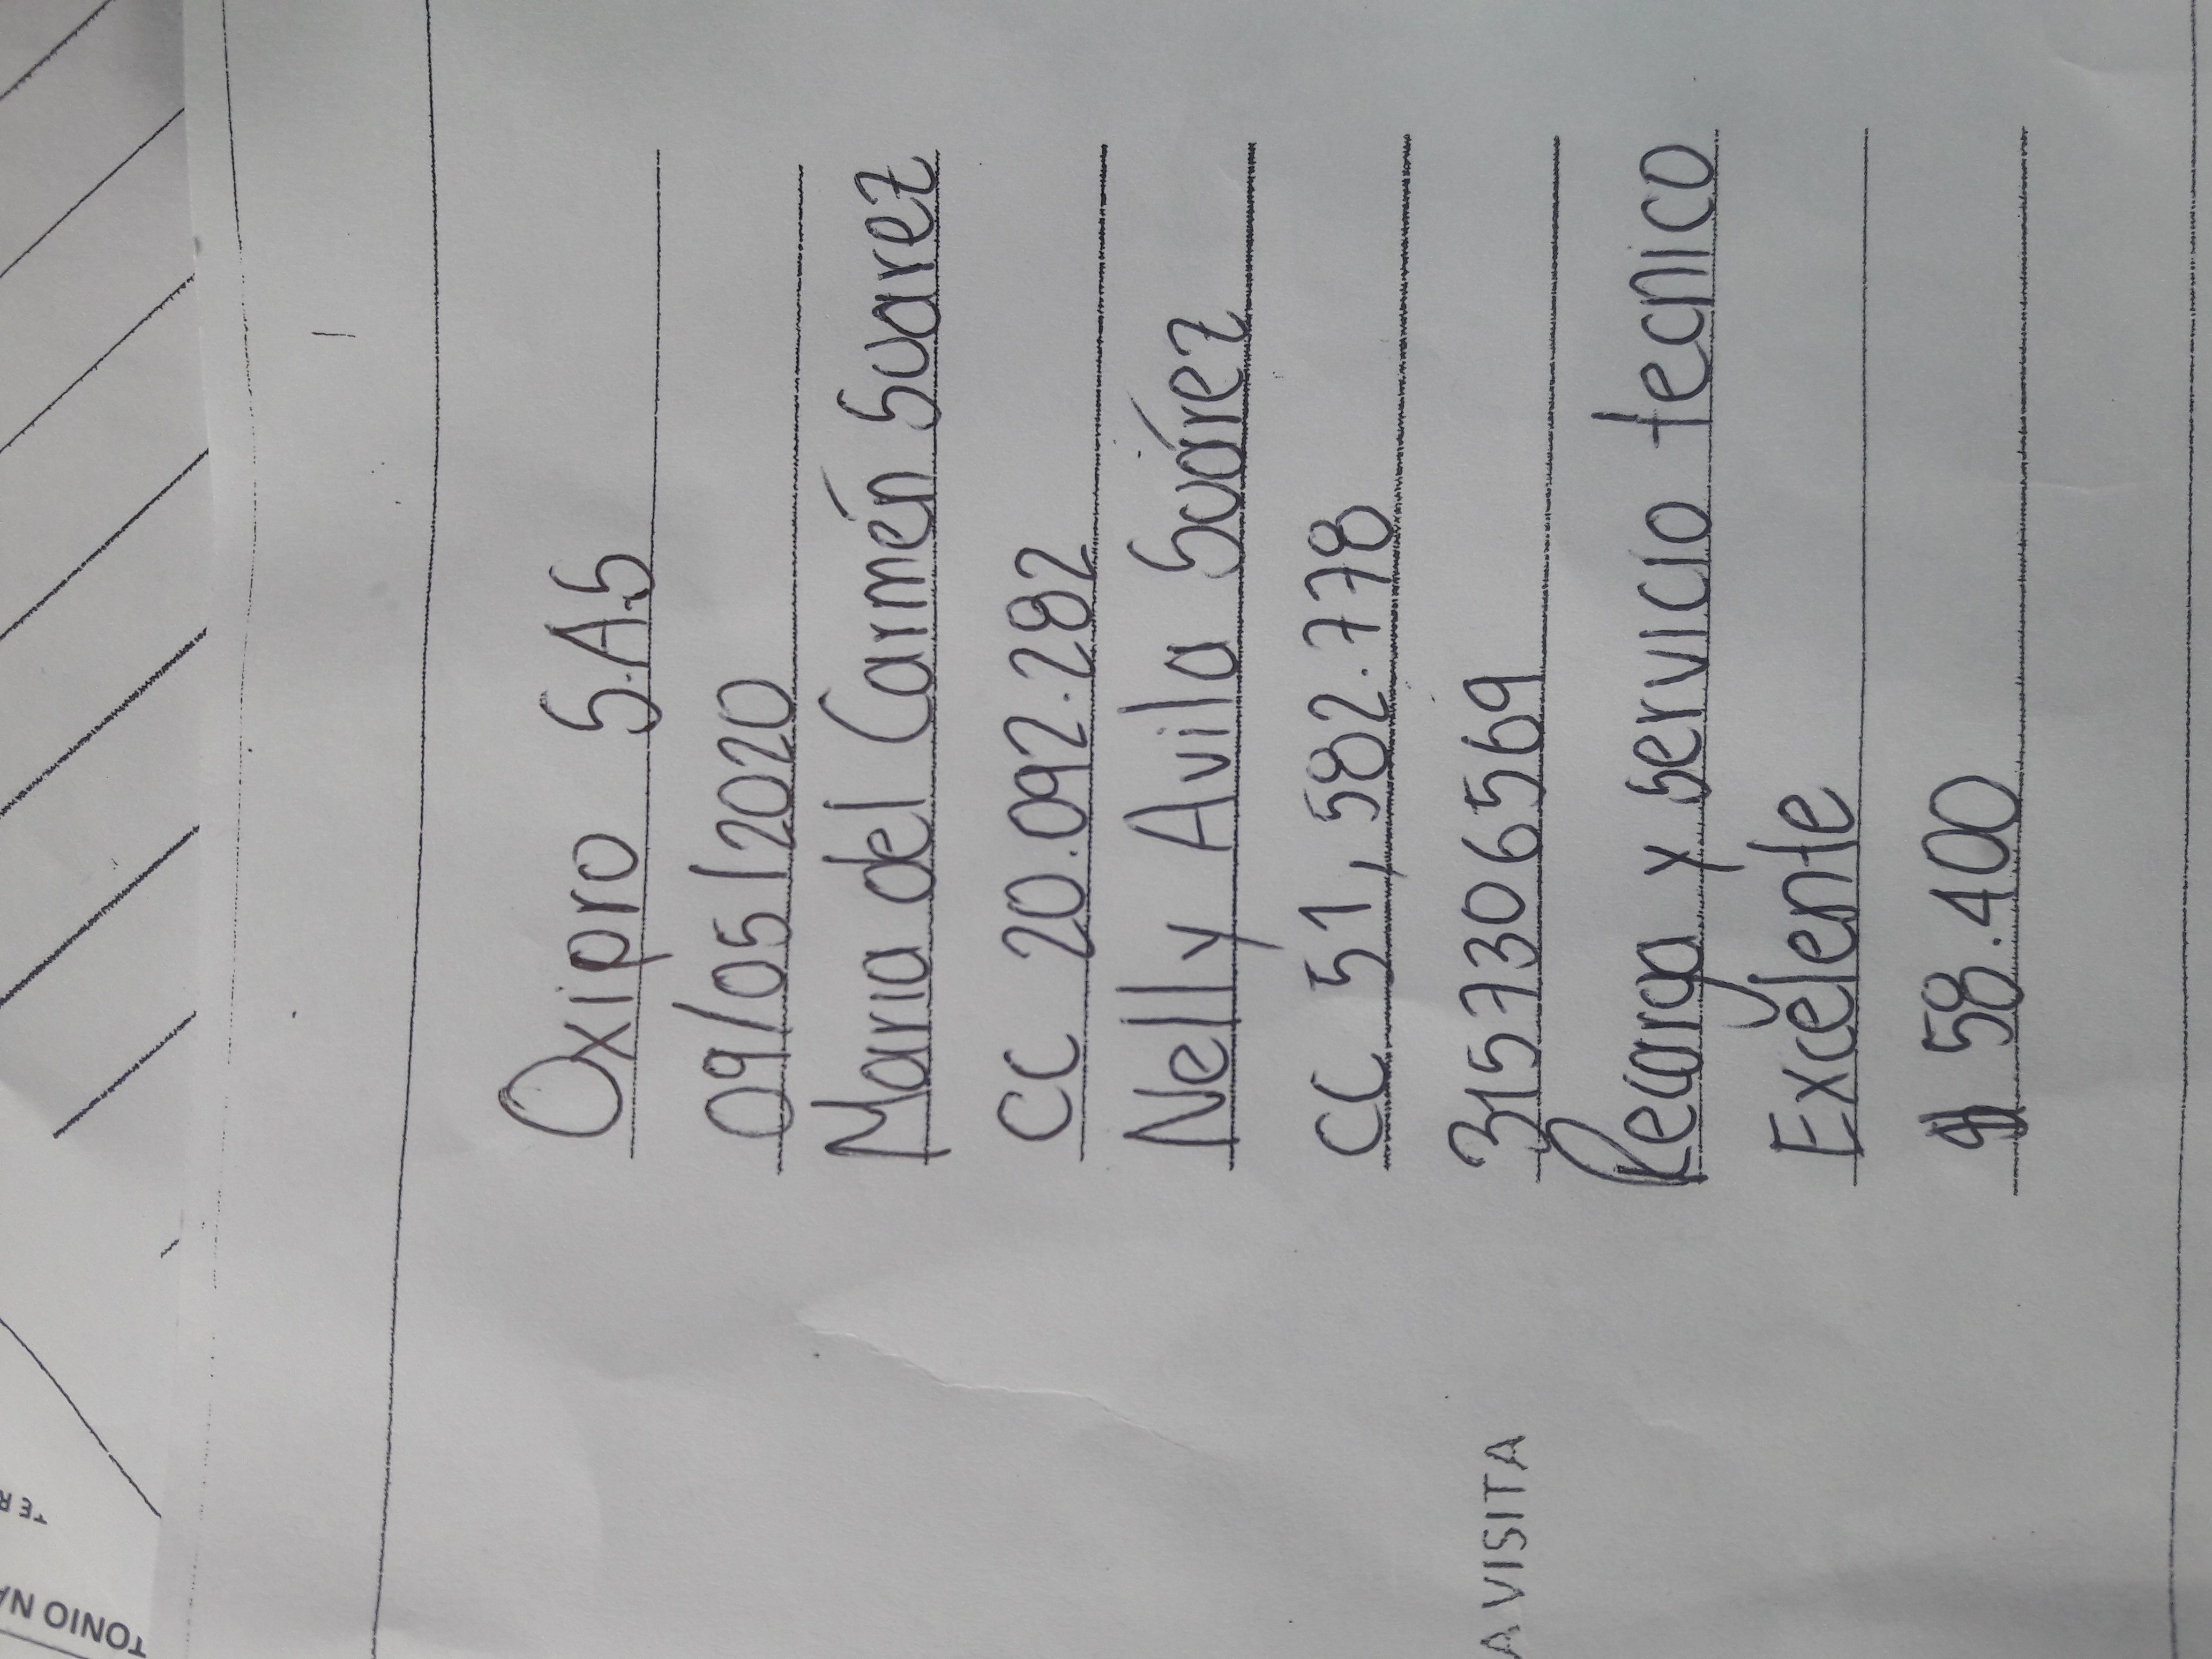 Oxipro S.A.S
09/05/2020
Maria del Carmén Suarez
CC 20.092.282
Nelly Avila Suárez
CC 51,582.778
3157306569
Recarga y servicio tecnico
Excelente
$ 58.400
A VISITA